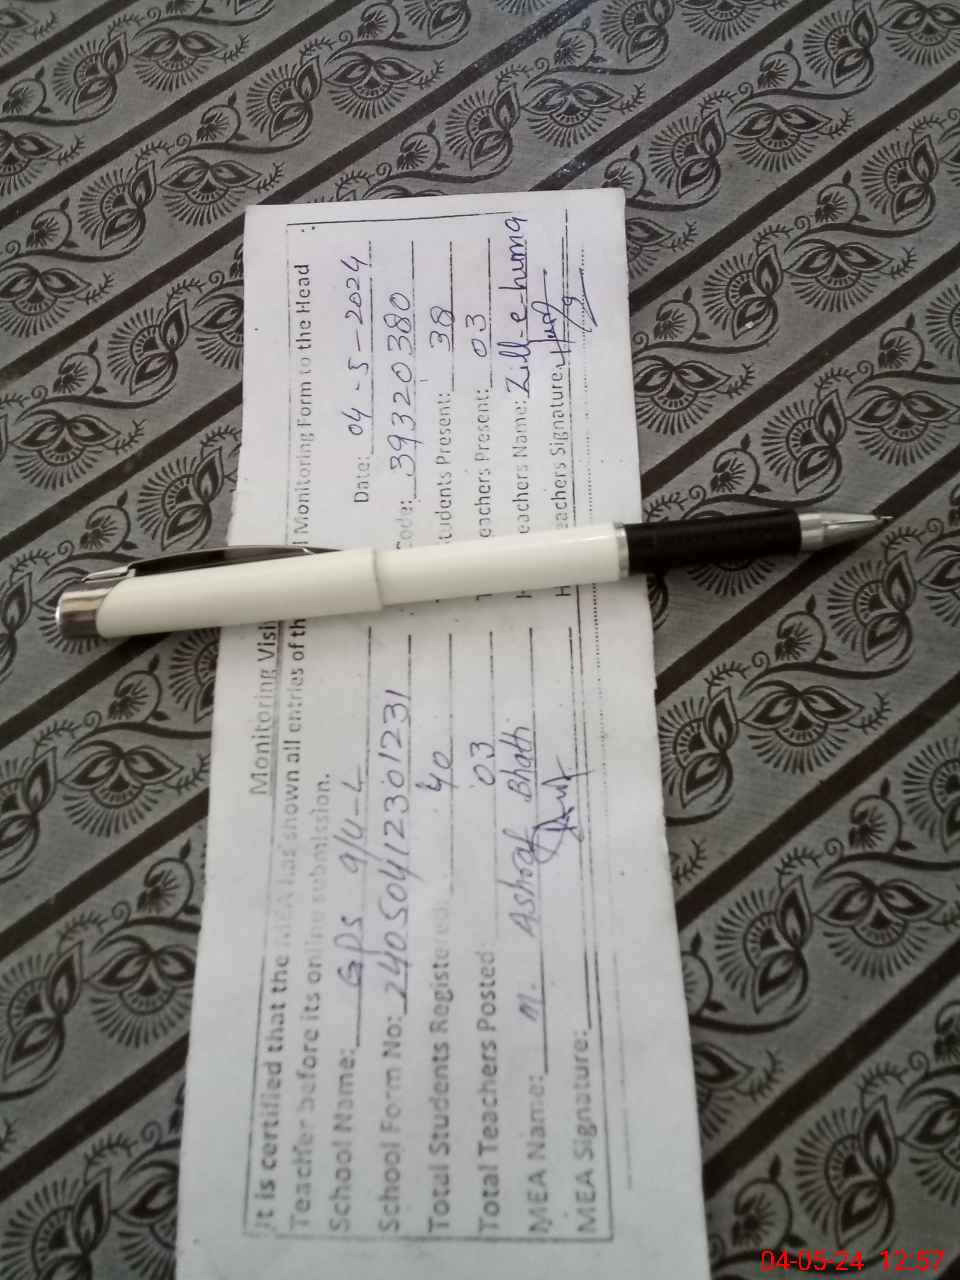 Monitoring Visi
It is certified that the MEA has shown all entries of th Monitoring Form to the Head
Teacher before its online submission.
Date: 04-5-2024
School Name: GPS 9/4-L
School Form No: 2405041230 1231 Code: 39320380
Total Students Registered: 40 tudents Present: 38
Total Teachers Posted: 03 eachers Present: 03
MEA Name: M. Ashraf Bhatti eachers Name: Zill-e-huma
MEA Signature: H eachers Signature:
04-05-24 12:57